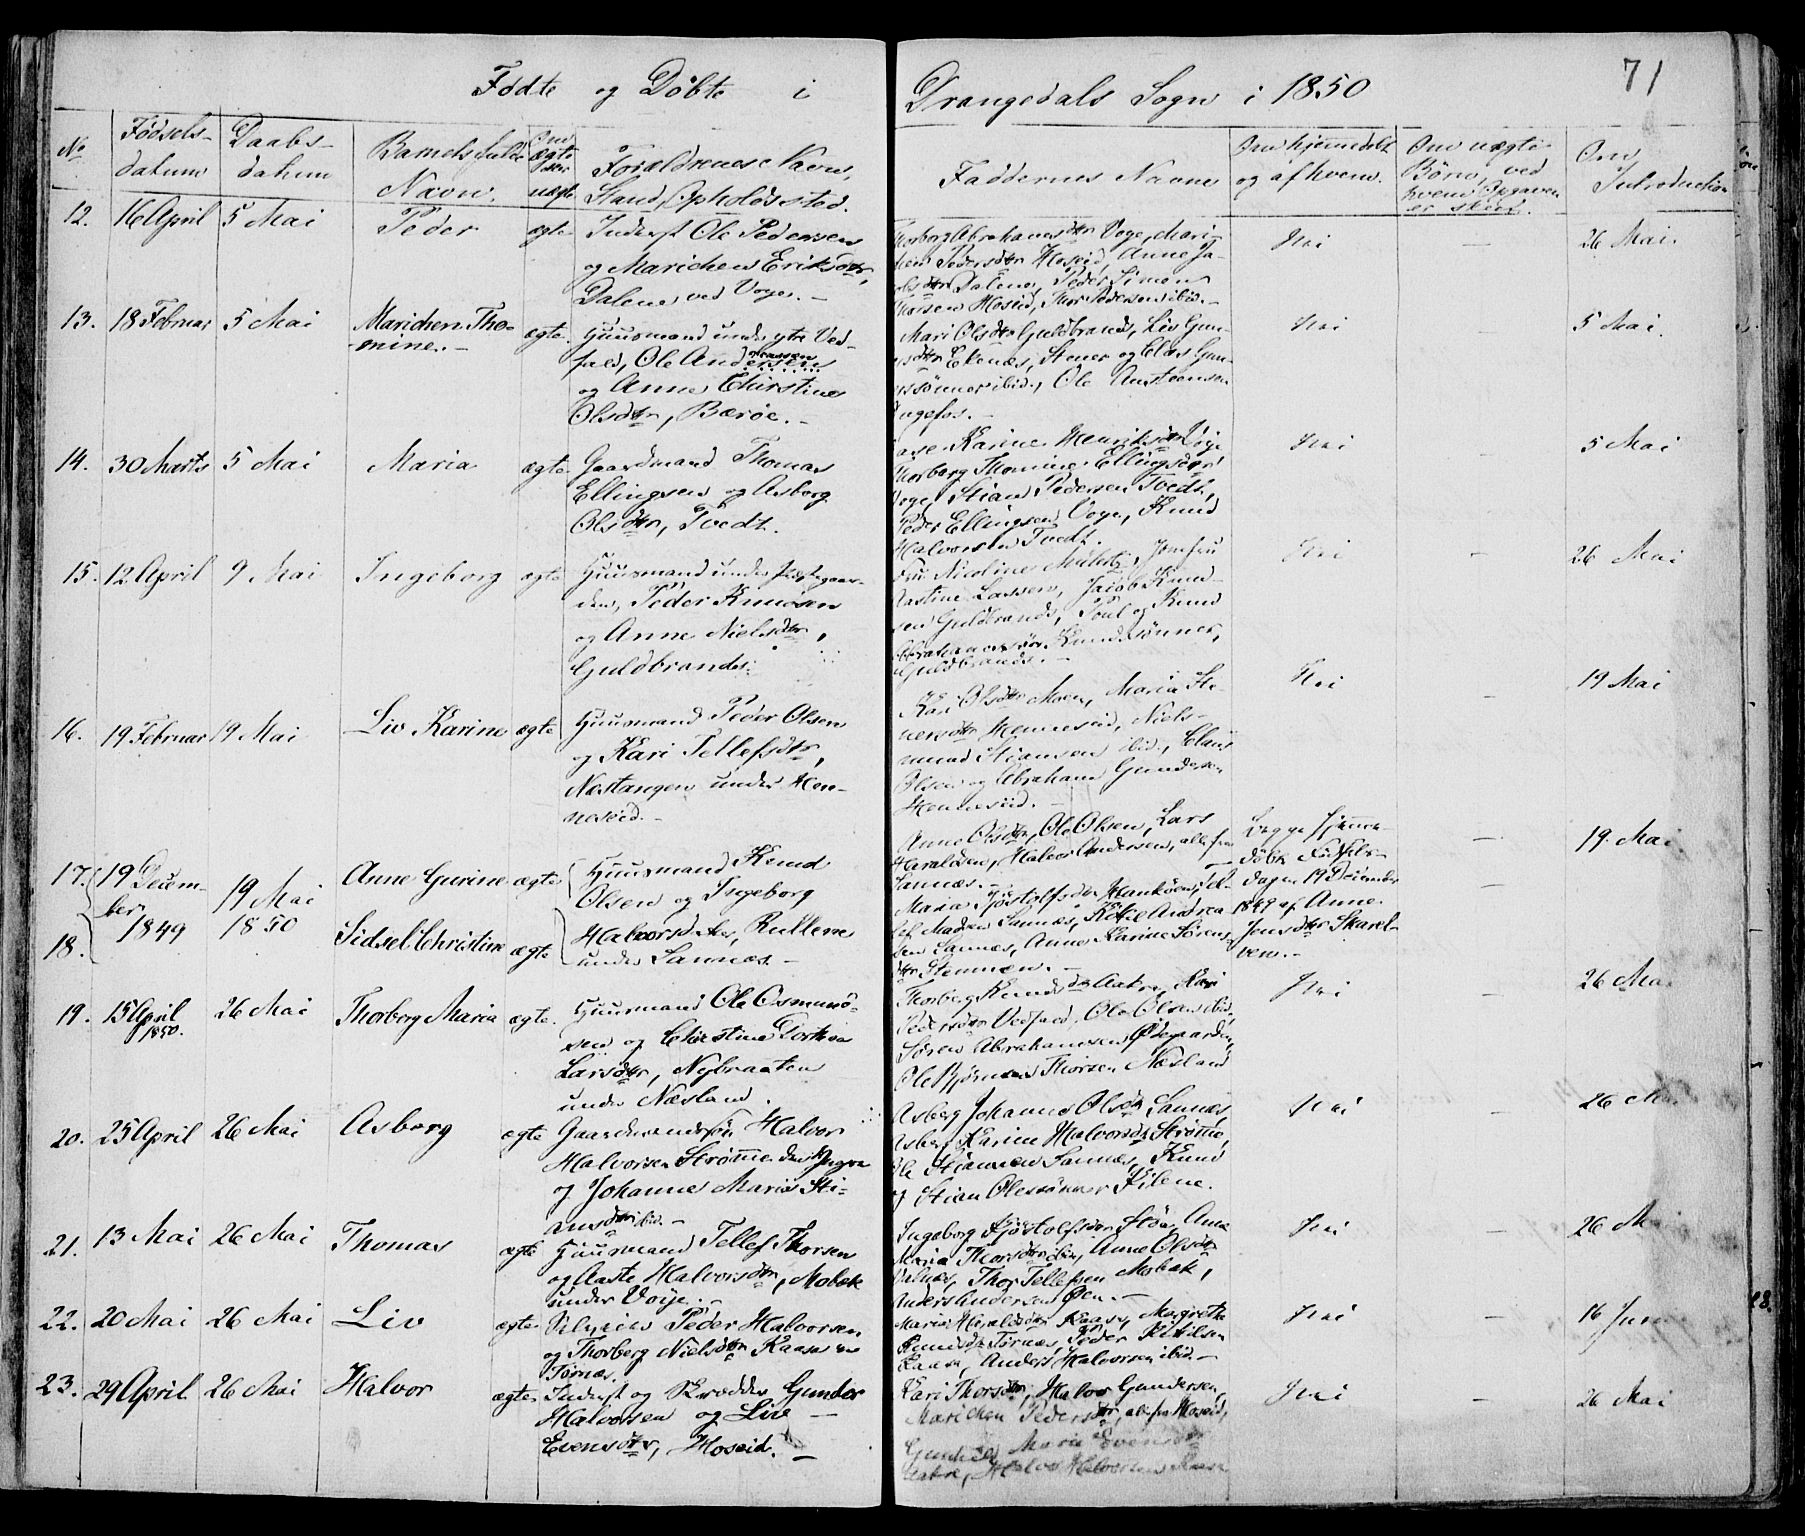 71
Fødte og Døbte i Drangedals Sogn i 1850
No
Fødsels-
datum
Daabs-
datum
Barnets fulde
Navn.
Om
ægte
eller
uægte
Forældrenes Navn,
Stand, Opholdssted.
Faddernes Navne
Om hjemmedøbt
og af hvem.
Om uægte
Børn, ved
hvem Opgaven
er skeet.
Om
Introduction
12. 16 April 5 Mai Peder ægte
Inderst Ole Pedersen
og Marichen Eriksdtr,
Dalene ved Voge. –
Thorborg Abrahamsdtr Voge, Mari-
chen Pedersdtr Hoseid, Anne Ja-
Dalene, Peder Simon
Thorsen Hoseid, Thor Pedersen ibid. –
Nei – 26 Mai.
13. 18 Februar 5 Mai Marichen Tho-
-mine. – ægte
Huusmand under ytre Ved-
fald, Ole Andersen
og Anne Christine
Olsdtr, Bærøe. –
Mari Olsdtr Guldbrands, Liv Gun-
Ekenæs, Stener og Claus Gun-
ibid., Ole Austeensen
Nei – 5 Mai.
14. 30 Marts 5 Mai Maria ægte
Gaardmand Thomas
Ellingsen og Asborg
Olsdtr, Tvedt.
Karine Henriksdtr Voje
Thorborg Thomine Ellingsdtr
Voge, Stian Pedersen Tvedt,
Peder Ellingsen Voge, Knud
Halvorsen Tvedt.
Nei – 5 Mai
15. 12 April 9 Mai Ingeborg ægte
Huusmand under Præstegaar-
den, Peder Knudsen
og Anne Nielsdtr,
Guldbrands.
Fru Nicoline Jomfru
Lassen, Jacob Knud-
sen Guldbrands, Poul og Knud
Knudssønner,
Guldbrands. –
Nei – 26 Mai
16. 19 Februar 19 Mai Liv Karine ægte
Huusmand Peder Olsen
og Kari Tellefsdtr,
Næstangen under Hen-
neseid. –
Kari Olsdtr Moen, Maria Ste-
nersdtr Henneseid, Niels-
Stiansen ibid., Claus
Olsen og Abraham Gundersen
Henneseid. –
Nei – 19 Mai
17. 19 Decem-
ber
1849 19 Mai
1850 Anne Gurine ægte
18. Sidsel Christine ægte
Huusmand Knud
Olsen og Ingeborg
Halvorsdtr, Rullene
under Sannæs. –
Anne Olsdtr, Ole Olsen, Lars
Haraldsen, Halvor Andersen, alle fra
Sannæs. –
Maria Gjøstolfsdtr Tel-
lef Madsen Sannæs, Andrea
Sannæs, Anne Karine Sørens-
dtr Stemmen. –
Begge hjemme-
døbt Fødsels-
dagen 19 December
1849 af Anne
Jonsdtr Skarel-
ven. –
– 19. Mai
19. 15 April
1850. 26 Mai Thorborg Maria ægte
Huusmand Ole Osmund-
sen og Christine
Larsdtr, Nybraaten
under Næsland.
Thorberg Knudsdtr Aakre, Kari
Pedersdtr Vedfald, Ole Olsen ibid,
Søren Abrahamsen Ødegaarden,
Ole Bjørn Thorsen Næsland
Nei – 26 Mai
20. 25 April 26 Mai Asborg ægte
Gaardmandssøn Halvor
Halvorsen Strømme den Yngre
og Johanne Maria Sti-
ansdtr ibid. –
Asberg Johanne Olsdtr Sannæs,
Asberg Karine Halvorsdtr Strømme,
Ole Stiansen Sannæs, Knud
og Stian Olessønner Kilene.
Nei – 26 Mai
21. 13 Mai 26 Mai Thomas ægte
Huusmand Tellef Thorsen
og Aaste Halvorsdtr, Mobæk
under Voije. –
Ingeborg Gjøstolfsdtr Anne
Maria Thorsdtr ibid, Anne Olsdtr
Thor Tellefsen Mobæk,
Anders Andersen Øen. –
Nei – 26 Mai
22. 20 Mai 26 Mai Liv ægte
Selveier Peder Halvorsen
og Thorberg Nielsdtr Kaasa
Tørnæs.
Maria Haraldsdtr Kaasa, Margrethe
Knudsdtr Tørnæs, Peder Kittilsen
Kaasa, Anders Halvorsen ibid. –
Nei – 16 Juni
23. 29 April 26 Mai Halvor ægte
Inderst og Skrædder Gunder
Halvorsen og Live –
Evensdtr, Hoseid. –
Kari Thorsdtr, Halvor Gundersen,
Marichen Pedersdtr, alle fra Hoseid,
Gunhild Maria Evensdtr
Aakre, Halvor Halvorsen Kaasa
Nei – 26 Mai